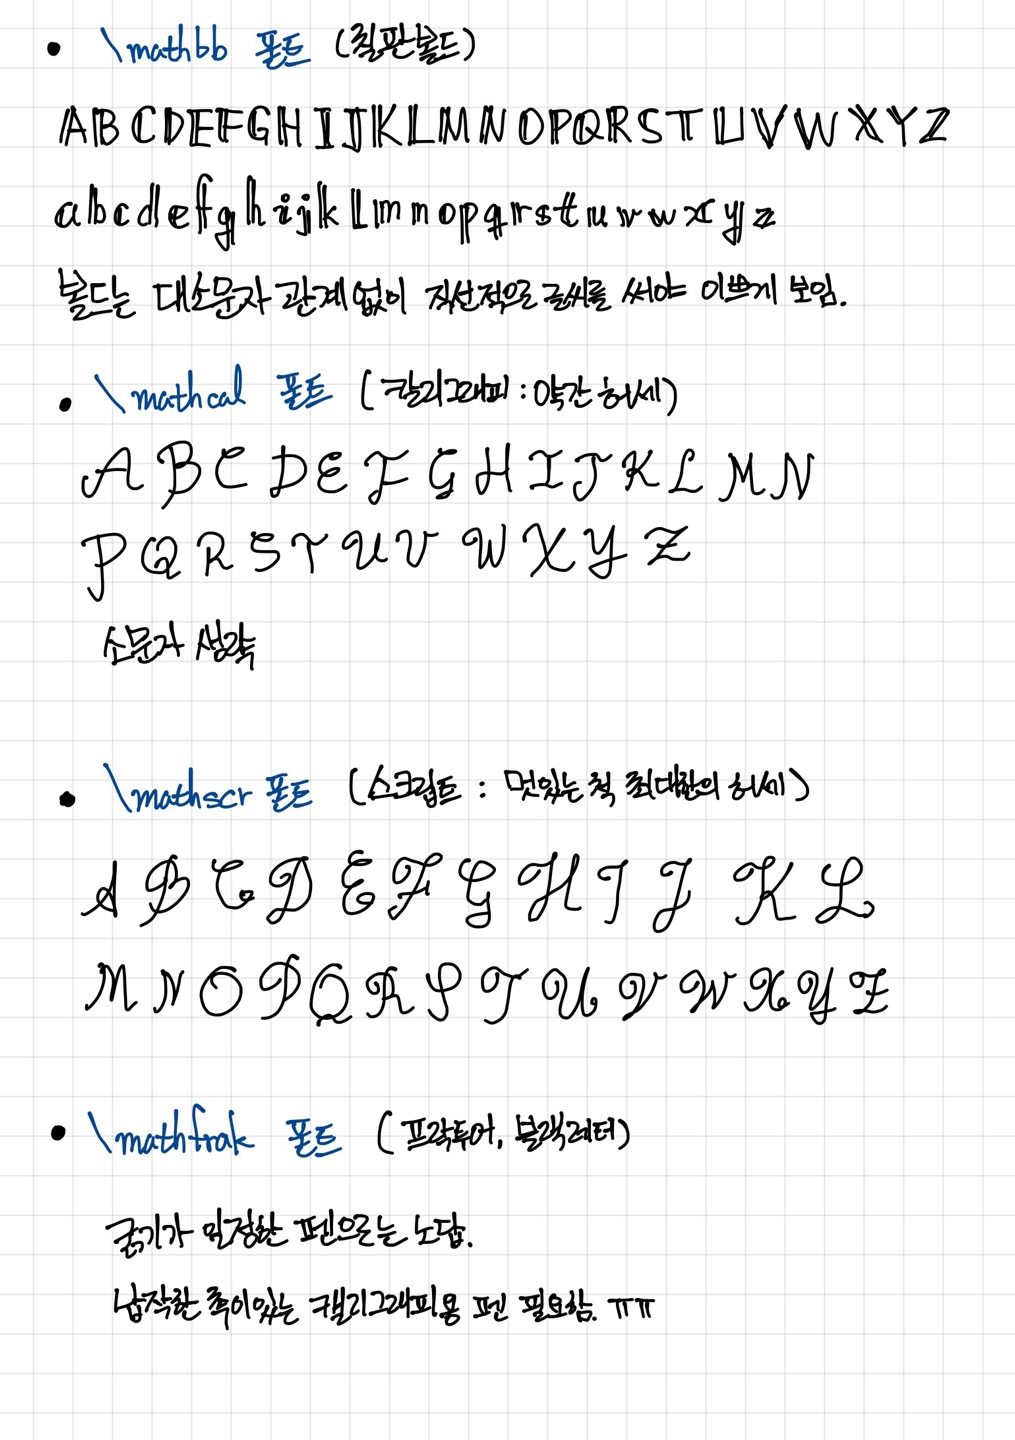 • \mathbb 폰트 (칠판볼드)
A B C D E F G H I J K L M N O P Q R S T U V W X Y Z
a b c d e f g h i j k l m n o p q r s t u v w x y z
볼드는 대소문자 관계없이 직선적으로 글씨를 써야 이쁘게 보임.
• \mathcal 폰트 (캘리그래피 : 약간 허세)
A B C D E F G H I J K L M N
P Q R S T U V W X Y Z
소문자 생략
• \mathscr 폰트 (스크립트 : 멋있는 척 최대한의 허세)
A B C D E F G H I J K L
M N O P Q R S T U V W X Y Z
• \mathfrak 폰트 (프락투어, 블랙레터)
굵기가 일정한 펜으로는 노답.
납작한 촉이있는 캘리그래피용 펜 필요함. ㅠㅠ